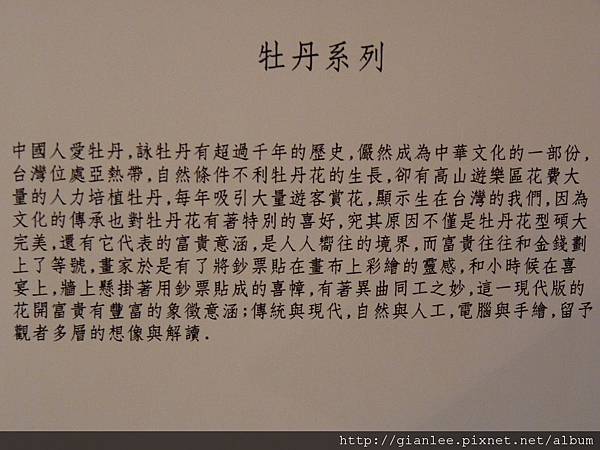 牡丹系列
中國人愛牡丹,詠牡丹有超過千年的歷史,儼然成為中華文化的一部份,
台灣位處亞熱帶,自然條件不利牡丹花的生長,卻有高山遊樂區花費大
量的人力培植牡丹,每年吸引大量遊客賞花,顯示生在台灣的我們,因為
文化的傳承也對牡丹花有著特別的喜好,究其原因不僅是牡丹花型碩大
完美,還有它代表的富貴意涵,是人人嚮往的境界,而富貴往往和金錢劃
上了等號,畫家於是有了將鈔票貼在畫布上彩繪的靈感,和小時候在喜
宴上,牆上懸掛著用鈔票貼成的喜幛,有著異曲同工之妙,這一現代版的
花開富貴有豐富的象徵意涵;傳統與現代,自然與人工,電腦與手繪,留予
觀者多層的想像與解讀.
http://gianlee.pixnet.net/album